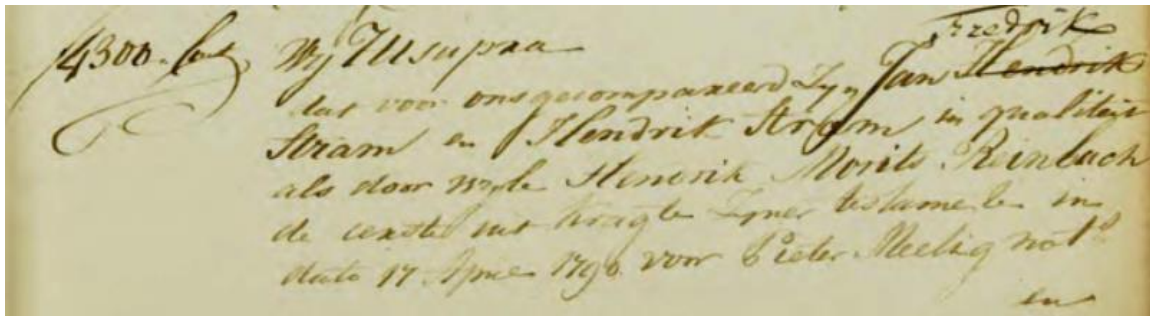 Fredrik
ƒ4300.- Wij Ut supra
dat voor ons gecompareerd Zyn Jan Hendrik
Stram en Hendrik Stram in qualiteit
als door wyle Hendrik Morits Reinbach
de eerste uit kragte Zyner testamente in
dato 17 April 1790 voor Pieter Meeting nots
en